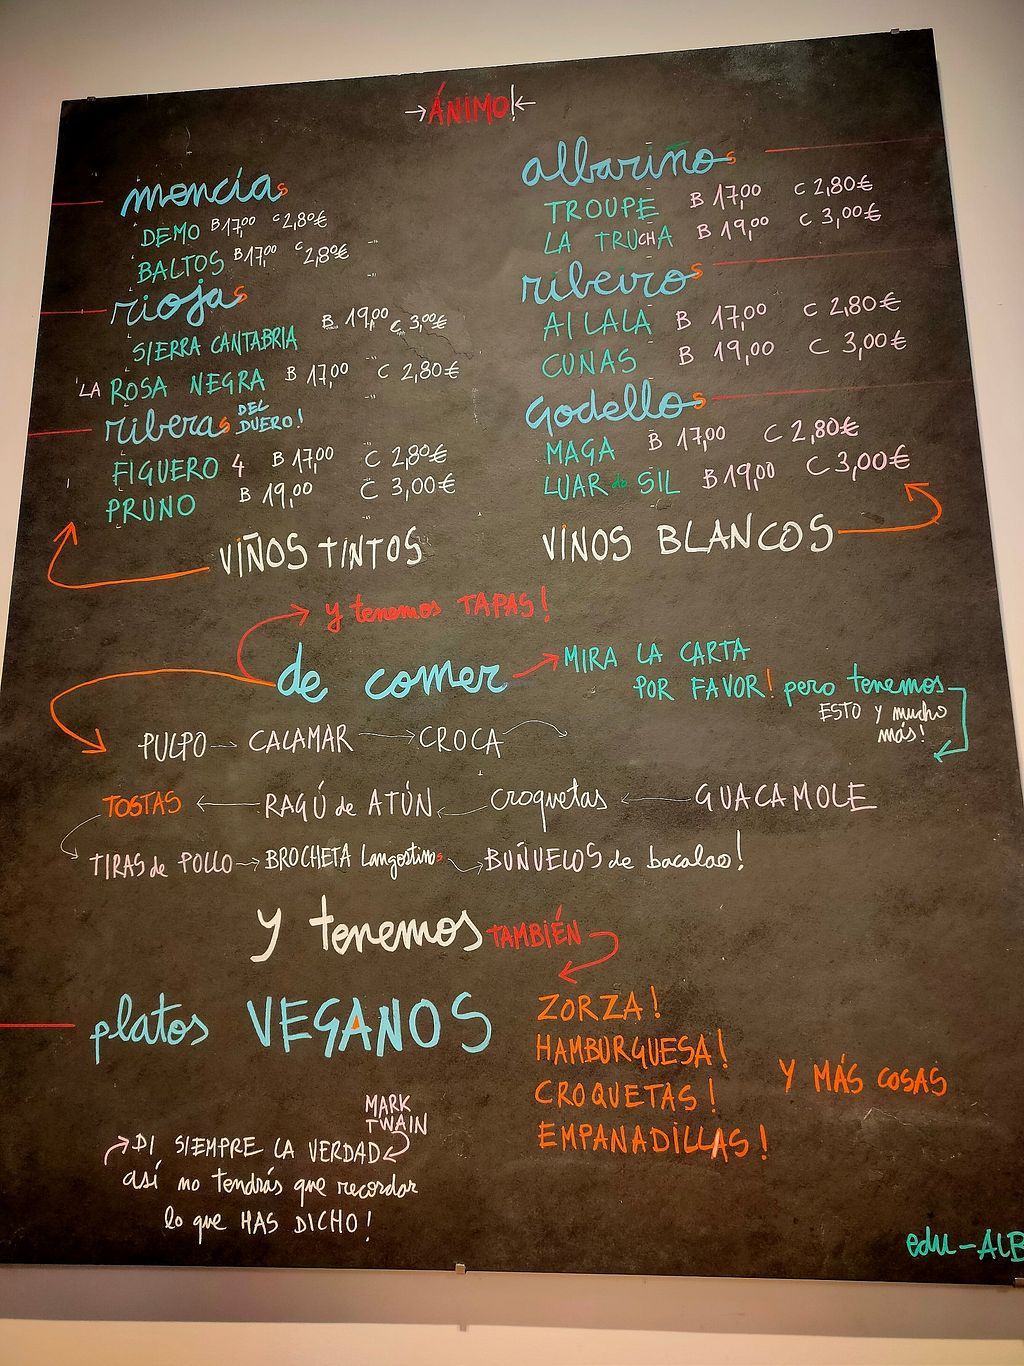 →ÁNIMO!←
mencías
DEMO B 17,00 C 2,80€
BALTOS B 17,00 C 2,80€
riojas
SIERRA CANTABRIA B 19,00 C 3,00€
LA ROSA NEGRA B 17,00 C 2,80€
riberas DEL DUERO!
FIGUERO 4 B 17,00 C 2,80€
PRUNO B 19,00 C 3,00€
VIÑOS TINTOS
albariños
TROUPE B 17,00 C 2,80€
LA TRUCHA B 19,00 C 3,00€
ribeiros
AILALA B 17,00 C 2,80€
CUNAS B 19,00 C 3,00€
Godellos
MAGA B 17,00 C 2,80€
LUAR do SIL B 19,00 C 3,00€
VINOS BLANCOS
y tenemos TAPAS!
de comer
MIRA LA CARTA
POR FAVOR! pero tenemos
ESTO y mucho
más!
PULPO → CALAMAR → CROCA
TOSTAS ← RAGÚ de ATÚN ← croquetas ← GUACAMOLE
TIRAS de POLLO → BROCHETA Langostinos → BUÑUELOS de bacalao!
y tenemos TAMBIÉN
platos VEGANOS
ZORZA!
HAMBURGUESA!
CROQUETAS!
EMPANADILLAS!
Y MÁS COSAS
MARK
TWAIN
DI SIEMPRE LA VERDAD
así no tendrás que recordar
lo que HAS DICHO!
edu-ALB